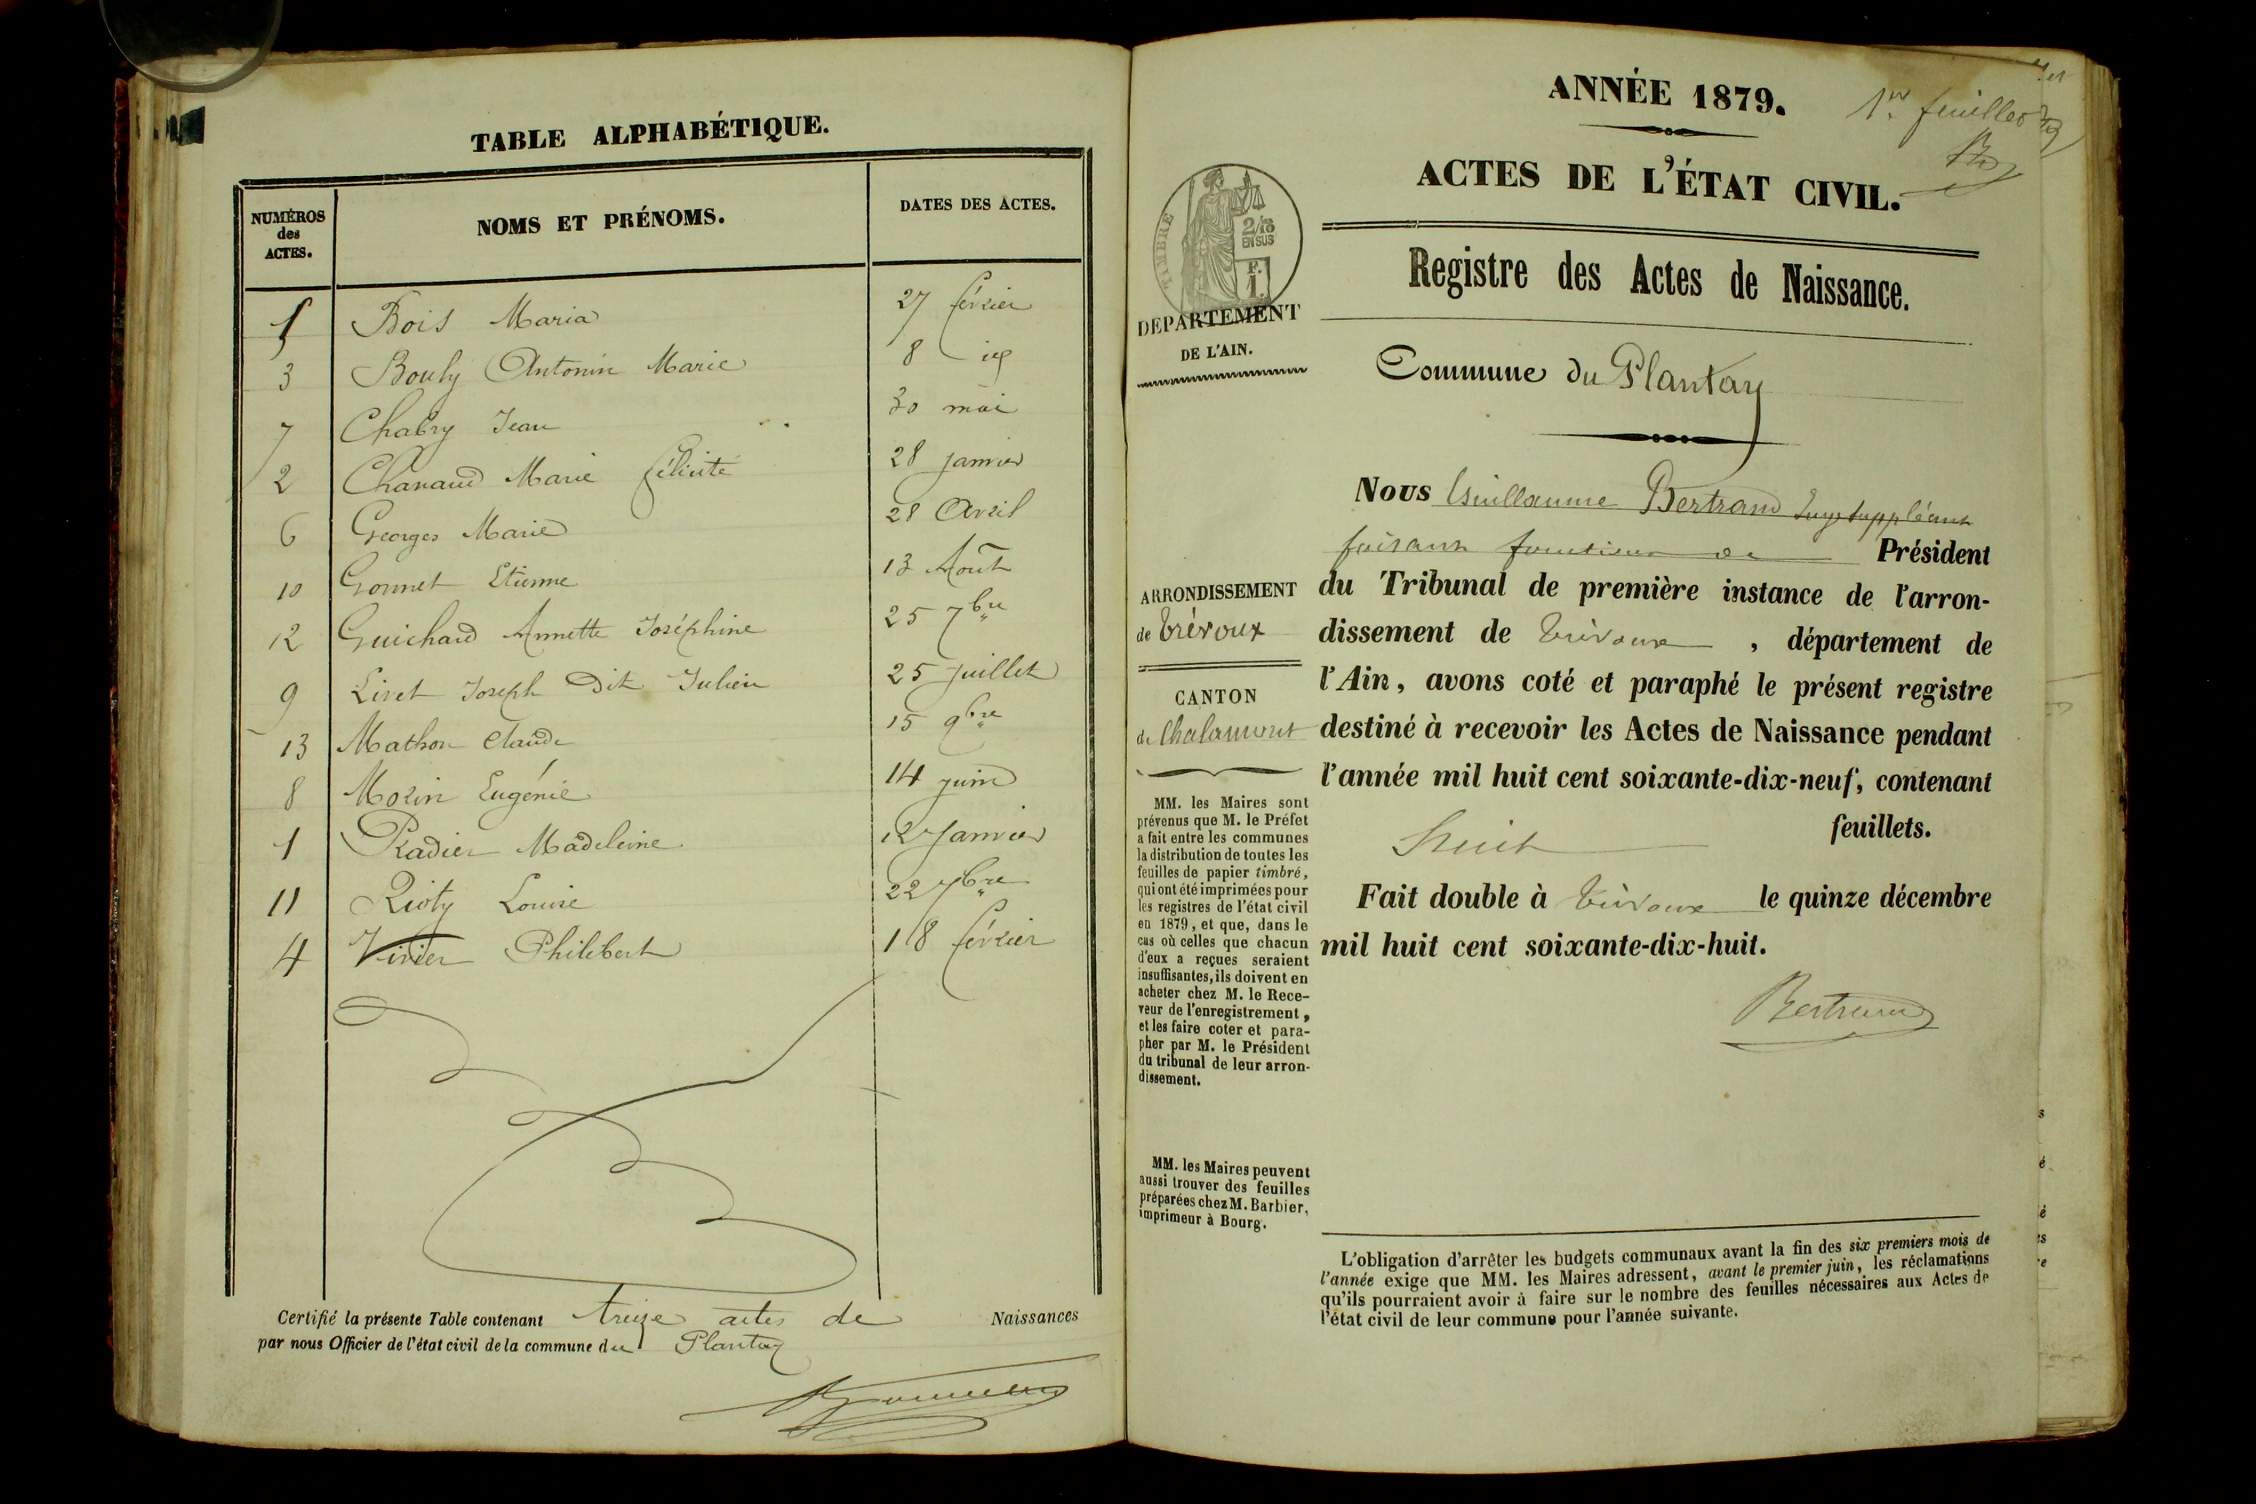 TABLE ALPHABÉTIQUE.
NUMÉROS des ACTES. NOMS ET PRÉNOMS. DATES DES ACTES.
5 Bois Maria 27 février
3 Bouly Antonin Marie 8 id
7 Chabry Jean 30 mai
2 Chanaud Marie Félicité 28 janvier
6 Georges Marie 28 Avril
10 Gonnet Etienne 13 Août
12 Guichard Annette Joséphine 25 7bre
9 Livet Joseph dit Julien 25 juillet
13 Mathon Claude 15 9bre
8 Morin Eugénie 14 juin
1 Radier Madeleine 12 Janvier
11 Rioty Louise 22 7bre
4 Vivier Philibert 18 février
Certifié la présente Table contenant treize actes de Naissances
par nous Officier de l'état civil de la commune du Plantay
ANNÉE 1879.
1er feuillet
ACTES DE L'ÉTAT CIVIL.
TIMBRE
2/10
EN SUS
F.
1.
Registre des Actes de Naissance.
DÉPARTEMENT
DE L'AIN.
Commune du Plantay
Nous Guillaume Bertrand Juge suppléant
faisant fonctions de Président
du Tribunal de première instance de l'arron-
dissement de Trévoux, département de
l'Ain, avons coté et paraphé le présent registre
destiné à recevoir les Actes de Naissance pendant
l'année mil huit cent soixante-dix-neuf, contenant
huit feuillets.
Fait double à Trévoux le quinze décembre
mil huit cent soixante-dix-huit.
Bertrand
ARRONDISSEMENT
de Trévoux
CANTON
de Chalamont
MM. les Maires sont
prévenus que M. le Préfet
a fait entre les communes
la distribution de toutes les
feuilles de papier timbré,
qui ont été imprimées pour
les registres de l'état civil
en 1879, et que, dans le
cas où celles que chacun
d'eux a reçues seraient
insuffisantes, ils doivent en
acheter chez M. le Rece-
veur de l'enregistrement,
et les faire coter et para-
pher par M. le Président
du tribunal de leur arron-
dissement.
MM. les Maires peuvent
aussi trouver des feuilles
préparées chez M. Barbier,
imprimeur à Bourg.
L'obligation d'arrêter les budgets communaux avant la fin des six premiers mois de
l'année exige que MM. les Maires adressent, avant le premier juin, les réclamations
qu'ils pourraient avoir à faire sur le nombre des feuilles nécessaires aux Actes de
l'état civil de leur commune pour l'année suivante.